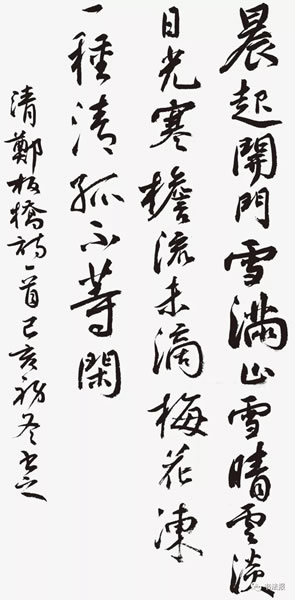 晨起開門雪滿山雪晴雲淡
日光寒檐流未滴梅花凍
一種清孤不等閑
清鄭板橋詩一首己亥初冬書之